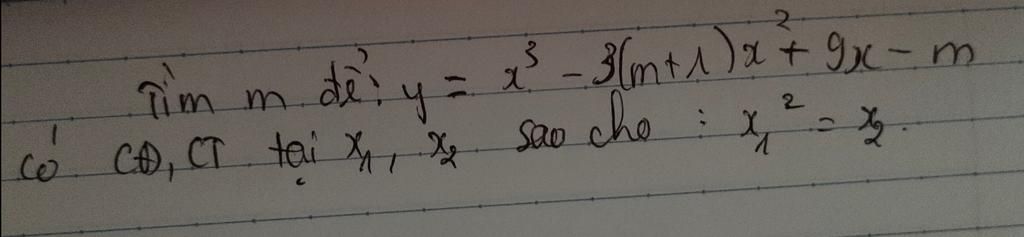 Tìm m để: y = x³ - 3(m+1)x² + 9x - m
có CĐ, CT tại x₁, x₂ sao cho : x₁² = x₂.